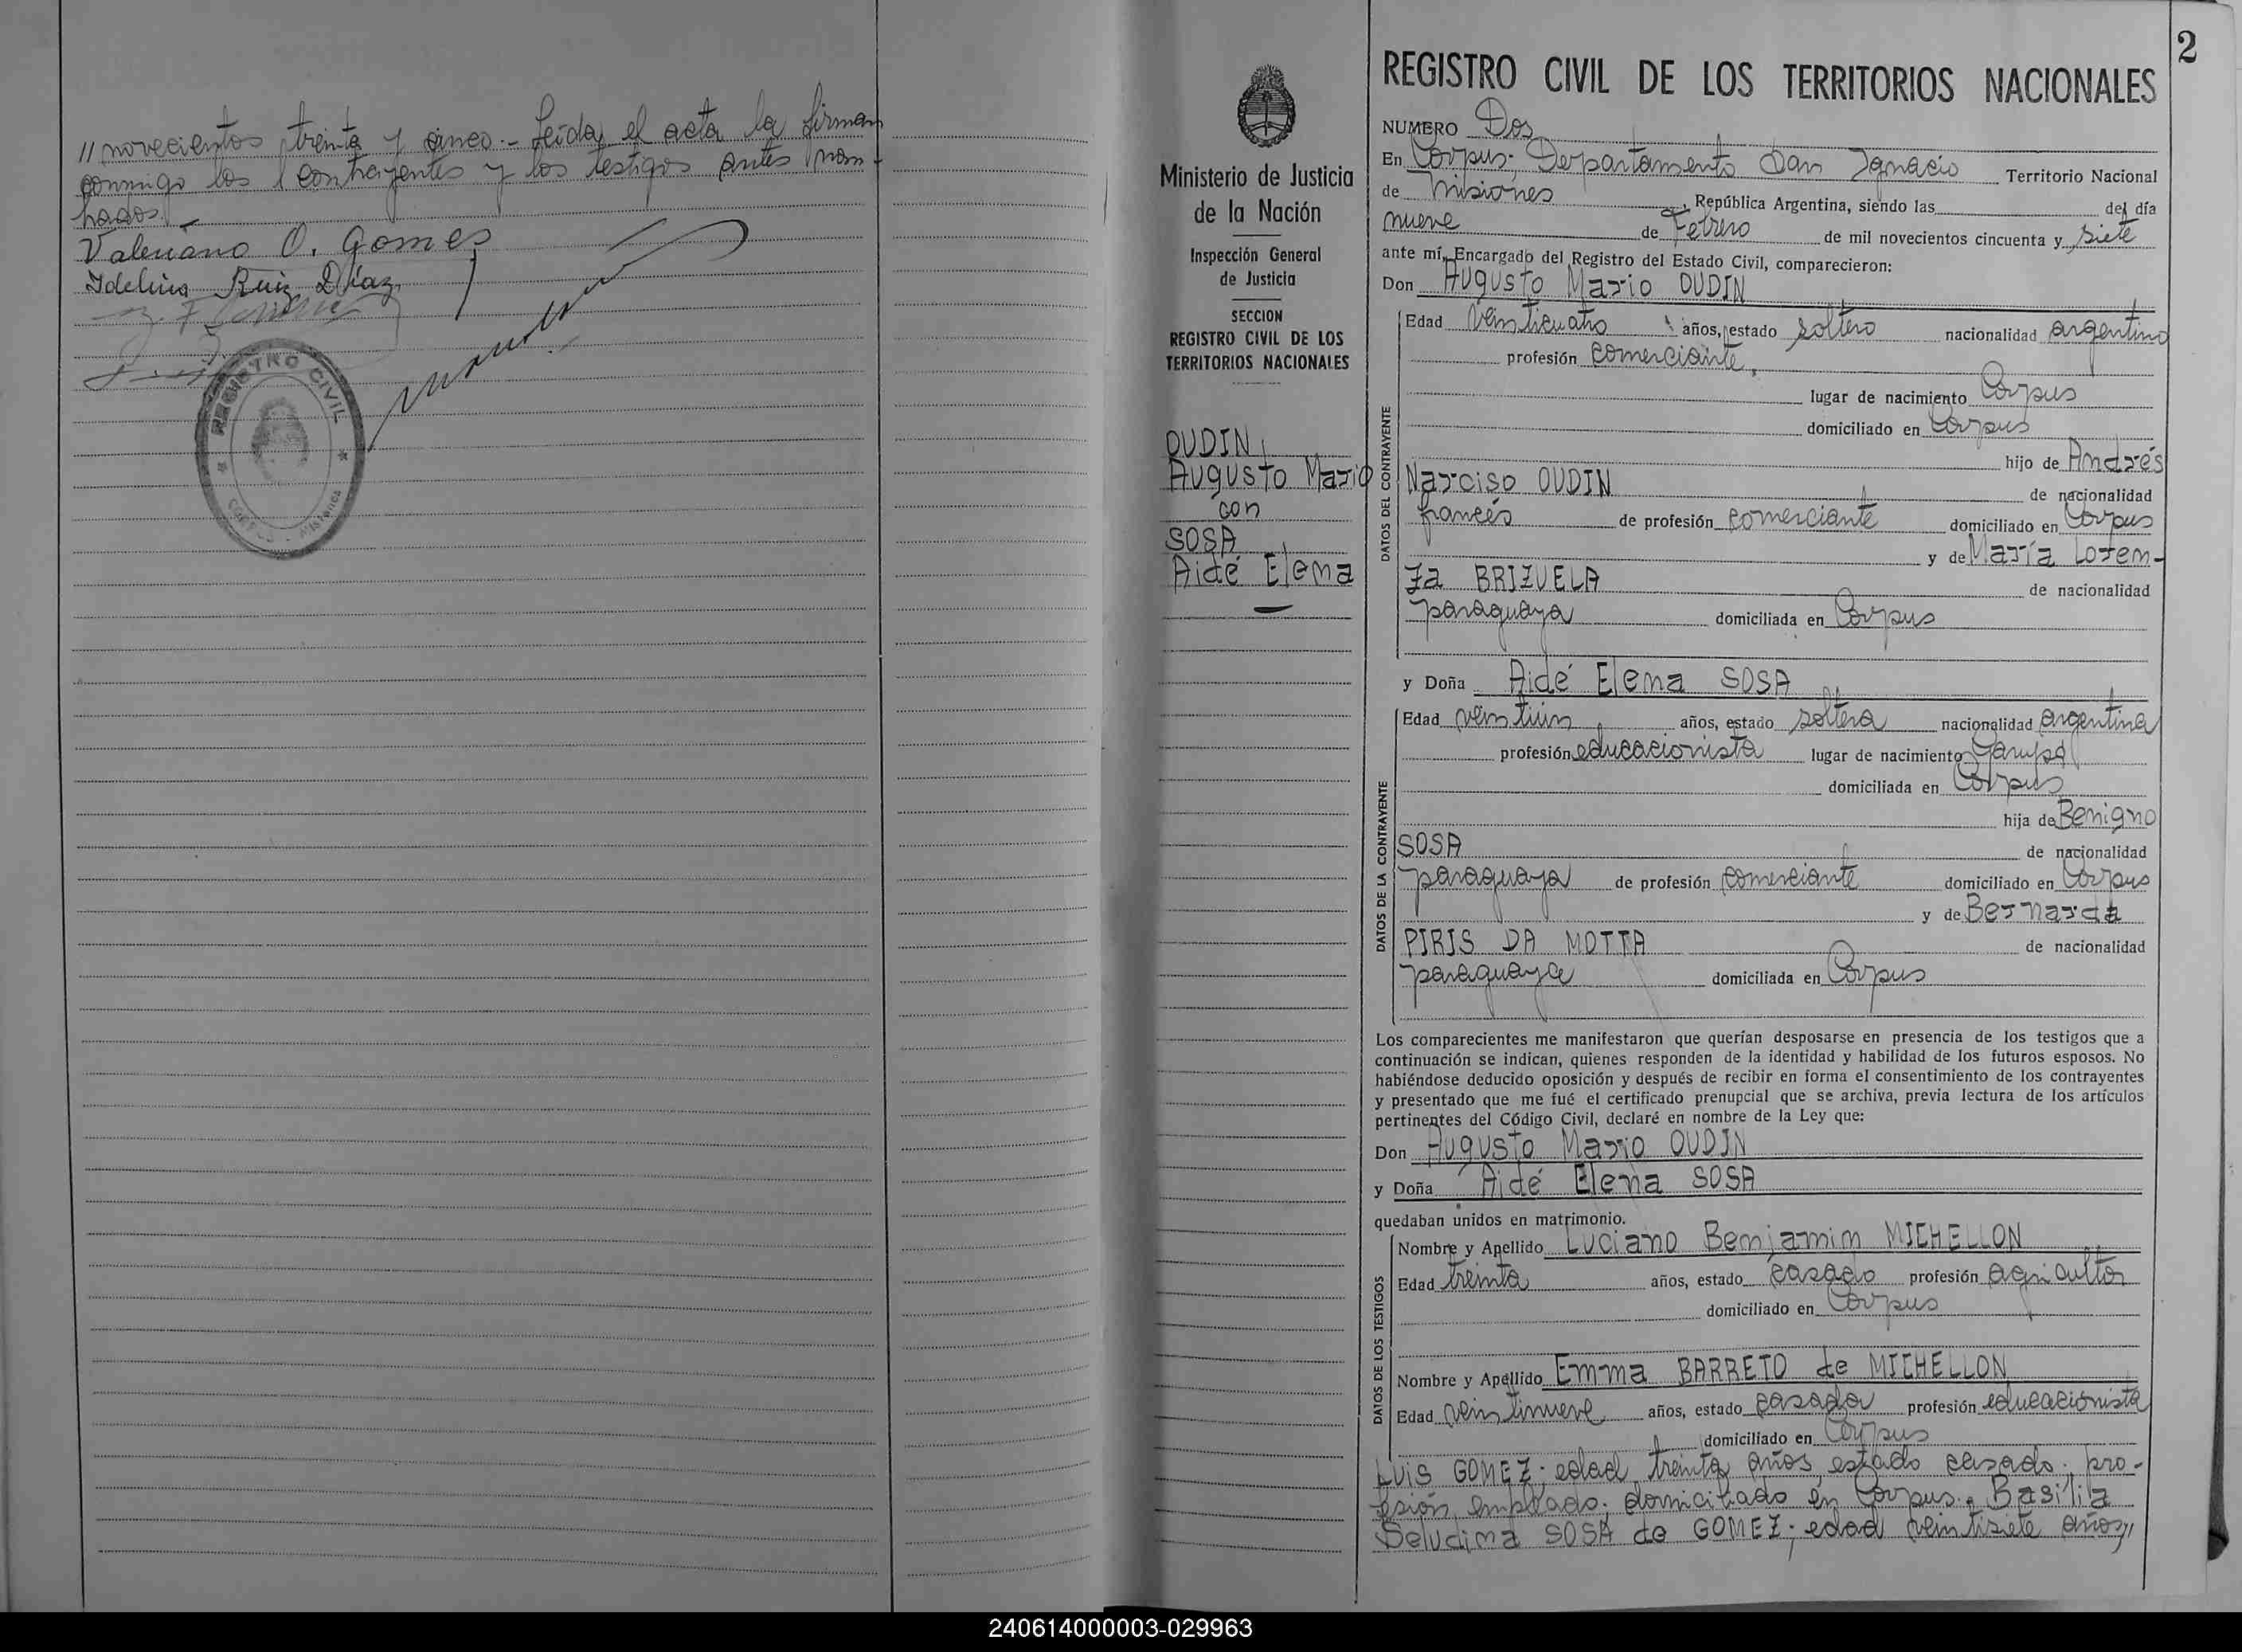 // novecientos treinta y cinco.- Leída el acta la firman
conmigo los contrayentes y los testigos antes nom-
brados.
Valeriano O. Gomes
Idelina Ruiz Díaz
REGISTRO CIVIL
Ministerio de Justicia
de la Nación
Inspección General
de Justicia
SECCION
REGISTRO CIVIL DE LOS
TERRITORIOS NACIONALES
OUDIN,
Augusto Mario
con
SOSA
Aidé Elena
2
REGISTRO CIVIL DE LOS TERRITORIOS NACIONALES
NUMERO Dos
En Corpus; Departamento San Ignacio Territorio Nacional
de Misiones, República Argentina, siendo las del día
nueve de Febrero de mil novecientos cincuenta y siete
ante mí, Encargado del Registro del Estado Civil, comparecieron:
Don Augusto Mario OUDIN
DATOS DEL CONTRAYENTE
Edad veinticuatro años, estado soltero nacionalidad argentino
profesión comerciante,
lugar de nacimiento Corpus
domiciliado en Corpus
hijo de Andrés
Narciso OUDIN de nacionalidad
francés de profesión comerciante domiciliado en Corpus
y de María Loren-
za BRIZUELA de nacionalidad
paraguaya domiciliada en Corpus
y Doña Aidé Elena SOSA
DATOS DE LA CONTRAYENTE
Edad veintiún años, estado soltera nacionalidad argentina
profesión educacionista lugar de nacimiento
domiciliada en Corpus
hija de Benigno
SOSA de nacionalidad
paraguaya de profesión comerciante domiciliado en Corpus
y de Bernarda
PIRIS DA MOTTA de nacionalidad
paraguaya domiciliada en Corpus
Los comparecientes me manifestaron que querían desposarse en presencia de los testigos que a
continuación se indican, quienes responden de la identidad y habilidad de los futuros esposos. No
habiéndose deducido oposición y después de recibir en forma el consentimiento de los contrayentes
y presentado que me fué el certificado prenupcial que se archiva, previa lectura de los artículos
pertinentes del Código Civil, declaré en nombre de la Ley que:
Don Augusto Mario OUDIN
y Doña Aidé Elena SOSA
quedaban unidos en matrimonio.
DATOS DE LOS TESTIGOS
Nombre y Apellido Luciano Benjamin MICHELLON
Edad treinta años, estado casado profesión agricultor
domiciliado en Corpus
Nombre y Apellido Emma BARRETO de MICHELLON
Edad veintinueve años, estado casada profesión educacionista
domiciliado en Corpus
Luis GOMEZ; edad treinta años, estado casado; pro-
fesión empleado; domiciliado en Corpus; Basilia
Deludima SOSA de GOMEZ; edad veintisiete años,//
240614000003-029963